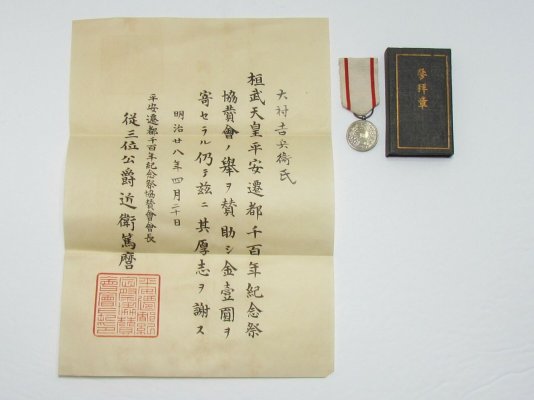 大村吉兵衛氏
桓武天皇平安遷都千百年紀念祭
協賛會ノ擧ヲ賛助シ金壹圓ヲ
寄セラル仍テ玆ニ其厚志ヲ謝ス
明治廿八年四月二十日
平安遷都千百年紀念祭協賛會會長
從三位公爵近衛篤麿
參拝章